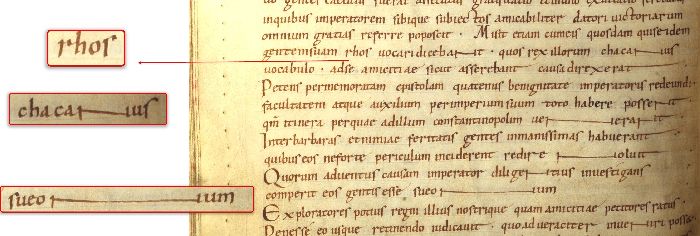 rhos
chacanus
sueonum
inquibus imperatorem sibique subiectos amicabiliter datori uictoriarum
omnium gratias referre poposcit · Misit etiam cumeis quosdam quiseidem
gentemsuam rhos uocaridicebant · quos rex illorum chacanus
uocabulo · adse amicitiae sicut asserebant causadirexerat
Petens permemoratam epistolam quatenus benignitate imperatoris redeundi
facultatem atque auxilium perimperiumsuum toto habere possent
qm̄ itinera perquae adillum constantinopolim uenerant
Interbarbaras etnimiae feritatis gentes inmanissimas habuerant
quibuseos neforte periculum inciderent redire noluit
Quorum aduentus causam imperator diligentius inuestigans
comperit eos gentisesse sueonum
Exploratores potius regni illius nostrique quam amicitiae petitores ratus
Penesse eo usque retinendo iudicauit · quoadueraciter inueniri posset